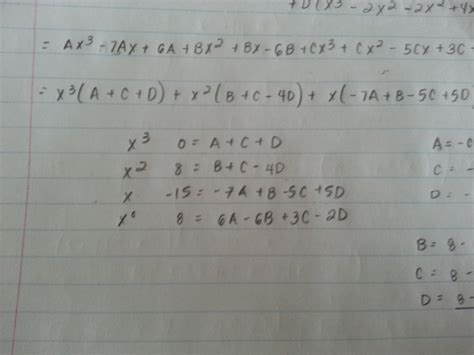 +D(x³ - 2x² - 2x² + 4x
= Ax³ - 7Ax + 6A + Bx² + Bx - 6B + Cx³ + Cx² - 5Cx + 3C -
= x³(A + C + D) + x²(B + C - 4D) + x(-7A + B - 5C + 5D)
x³ 0 = A + C + D
x² 8 = B + C - 4D
x -15 = -7A + B - 5C + 5D
x⁰ 8 = 6A - 6B + 3C - 2D
A = -C
C = -
D = -
B = 8 -
C = 8 -
D = 8 -